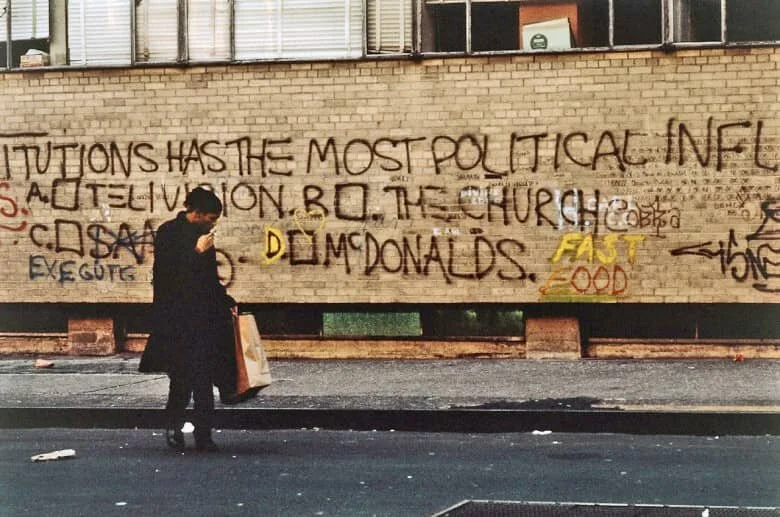 ITUTIONS HAS THE MOST POLITICAL INFL
S. A. TELIVISION. B. THE CHURCH
C. SA D MCDONALDS. FAST
FOOD